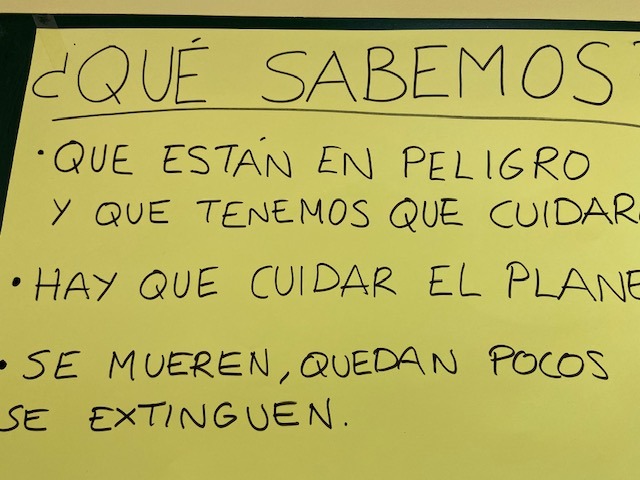 ¿QUÉ SABEMOS?
• QUE ESTÁN EN PELIGRO
Y QUE TENEMOS QUE CUIDAR
• HAY QUE CUIDAR EL PLANE
• SE MUEREN, QUEDAN POCOS
SE EXTINGUEN.